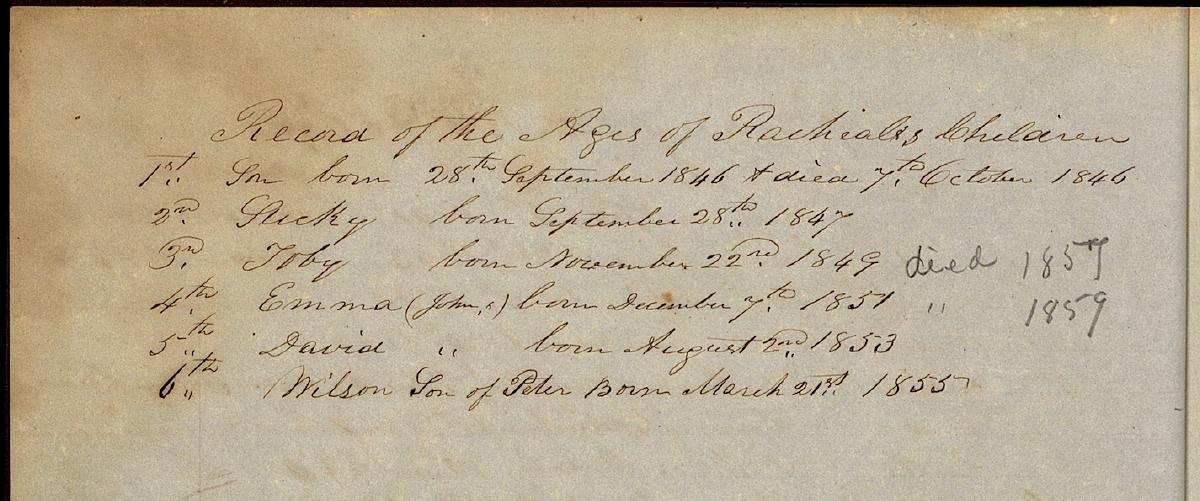 Record of the Ages of Rachieal,s Children
1st Son born 28th September 1846 & died 7th October 1846
2nd born September 28th 1847
3rd Toby born November 22nd 1849 died 1857
4th Emma (John,s) born December 7th 1851 " 1859
5th David " born August 2nd 1853
6th Wilson Son of Peter Born March 21st 1855